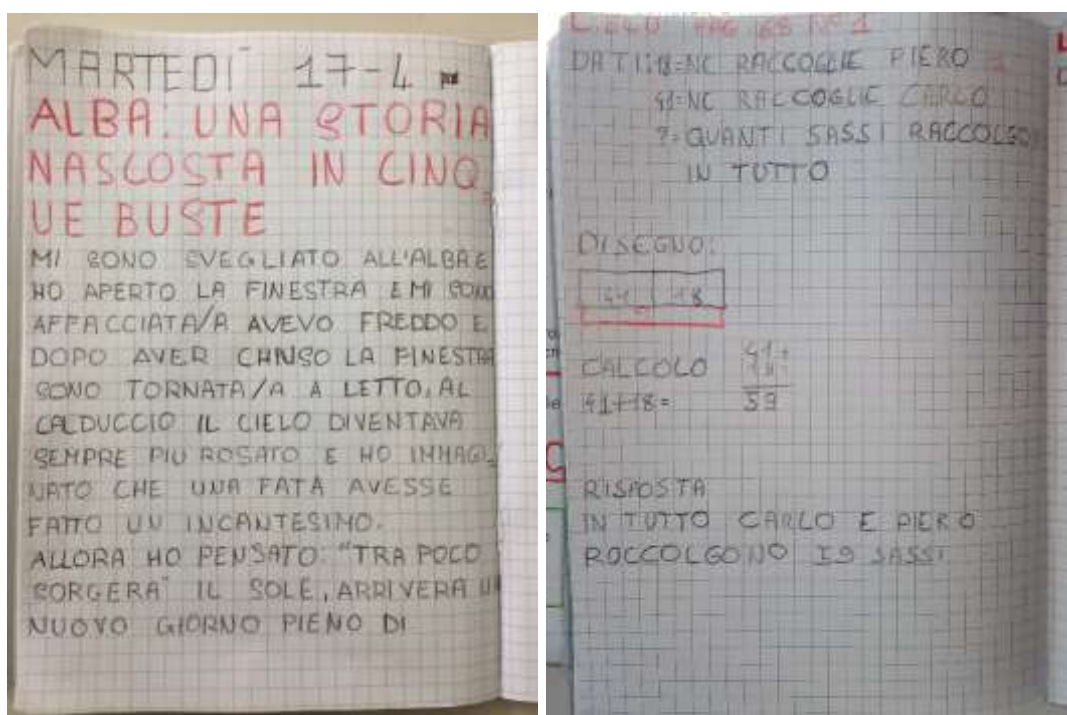 MARTEDÌ 17-4-
ALBA: UNA STORIA
NASCOSTA IN CINQ
UE BUSTE
MI SONO SVEGLIATO ALL'ALBA E
HO APERTO LA FINESTRA E MI SONO
AFFACCIATA/A AVEVO FREDDO E
DOPO AVER LA FINESTRA
SONO TORNATA/A A LETTO, AL
CALDUCCIO IL CIELO DIVENTAVA
SEMPRE PIU ROSATO E HO IMMAGI
NATO CHE UNA FATA AVESSE
FATTO UN INCANTESIMO.
ALLORA HO PENSATO: "TRA POCO
SORGERA' IL SOLE, ARRIVERA UN
NUOVO GIORNO PIENO DI
PAG 65 N°1
DATI: 18=NC RACCOGLIE PIERO
41=NC RACCOGLIE CARLO
?=QUANTI SASSI RACCOLGO
IN TUTTO
DISEGNO:
41 18
CALCOLO 41+
18=
41+18= 59
RISPOSTA
IN TUTTO CARLO E PIERO
ROCCOLGONO 59 SASSI